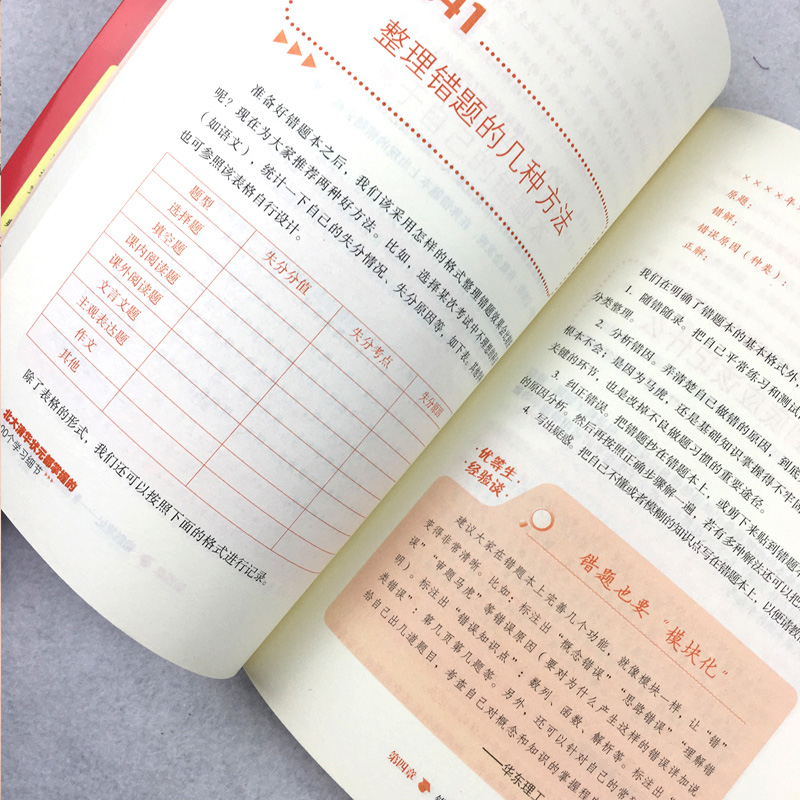 41
整理错题的几种方法
准备好错题本之后，我们该采用怎样的格式整理错题效果会比较
呢？现在为大家推荐两种好方法。比如，选择某次考试中不理想的科
（如语文），统计一下自己的失分情况、失分原因等，如下表。其他
也可参照该表格自行设计。
题型 失分分值 失分考点 失分原因
选择题
填空题
课内阅读题
课外阅读题
文言文题
主观表达题
作文
其他
除了表格的形式，我们还可以按照下面的格式进行记录。
北大清华状元都掌握的
00个学习细节
××××年
原题：
错解：
错误原因（种类）：
正解：
我们在明确了错题本的基本格式外，
1. 随错随录。把自己平常练习和测试
分类整理。
2. 分析错因。弄清楚自己做错的原因，到底
根本不会；是因为马虎，还是基础知识掌握得不牢
关键的环节，也是改掉不良做题习惯的重要途径。
3. 纠正错误。把错题抄在错题本上，或剪下来贴到错题
的原因分析。然后再按照正确步骤解一遍，若有多种解法还可以把
4. 写出疑惑。把自己不懂或者模糊的知识点写在错题本上，以便请教
优等生
经验谈
错题也要“模块化”
建议大家在错题本上完善几个功能，就像模块一样，让“错”
变得非常清晰。比如：标注出“概念错误”“思路错误”“理解错
误”“审题马虎”等错误原因（要对为什么产生这样的错误详加说
明）。标注出“错误知识点”：数列、函数、解析等。标注出
类错误”：第几页第几题等。另外，还可以针对自己的常
给自己出几道题目，考查自己对概念和知识的掌握程
——华东理工
第四章